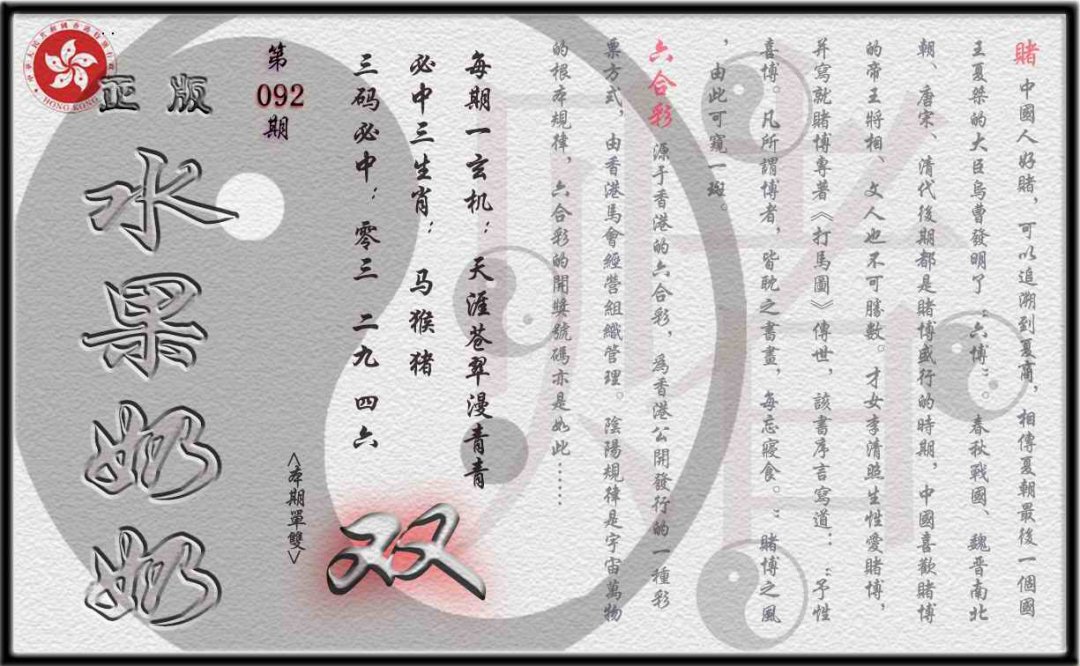 賭 中國人好賭，可以追溯到夏商，相傳夏朝最後一個國
王夏桀的大臣烏曹發明了“六博”。春秋戰國、魏晉南北
朝、唐宋、清代後期都是賭博盛行的時期，中國喜歡賭博
的帝王將相、文人也不可勝數。才女李清照生性愛賭博，
并寫就賭博專著《打馬圖》傳世，該書序言寫道：“予性
喜博。凡所謂博者，皆耽之書畫，每忘寢食。”賭博之風
，由此可窺一斑。
六合彩 源于香港的六合彩，為香港公開發行的一種彩
票方式，由香港馬會經營組織管理。陰陽規律是宇宙萬物
的根本規律，六合彩的開獎號碼亦是如此……
每期一玄机：天涯苍翠漫青青
必中三生肖：马猴猪
三码必中：零三 二九 四六
双
<本期單雙>
第092期
正版
水果奶奶
中華人民共和國香港特別行政區
HONG KONG
賭